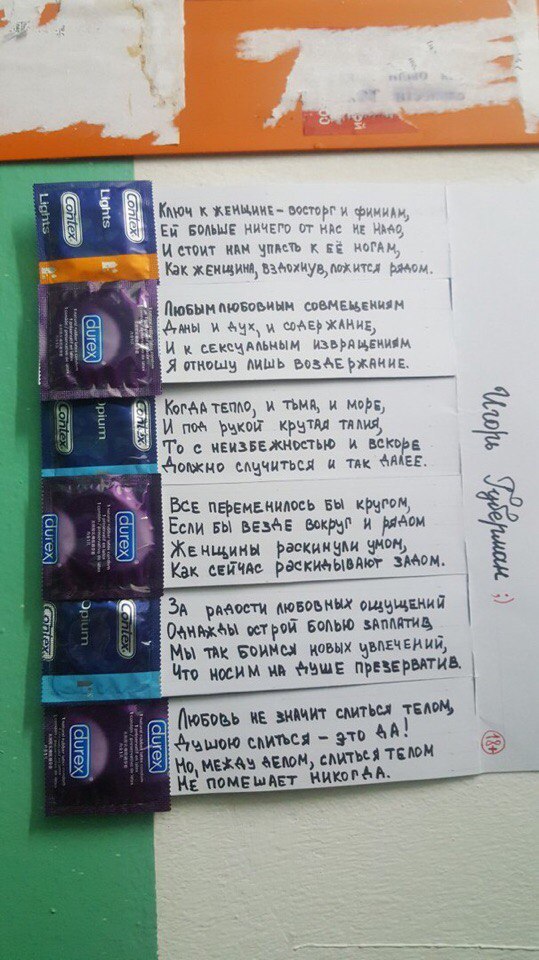 Contex
Lights
Contex
Lights
Ключ к женщине – восторг и фимиам,
Ей больше ничего от нас не надо,
И стоит нам упасть к её ногам,
Как женщина, вздохнув, ложится рядом.
durex
Любым любовным совмещениям
Даны и дух, и содержание,
И к сексуальным извращениям
Я отношу лишь воздержание.
Contex
Opium
Contex
Когда тепло, и тьма, и море,
И под рукой крутая талия,
То с неизбежностью и вскоре
Должно случиться и так далее.
durex
durex
Все переменилось бы кругом,
Если бы везде вокруг и рядом
Женщины раскинули умом,
Как сейчас раскидывают задом.
Contex
Opium
Contex
За радости любовных ощущений
Однажды острой болью заплатив,
Мы так боимся новых увлечений,
Что носим на душе презерватив.
durex
durex
Любовь не значит слиться телом,
Душою слиться – это да!
Но, между делом, слиться телом
Не помешает никогда.
Игорь Губерман ;)
18+